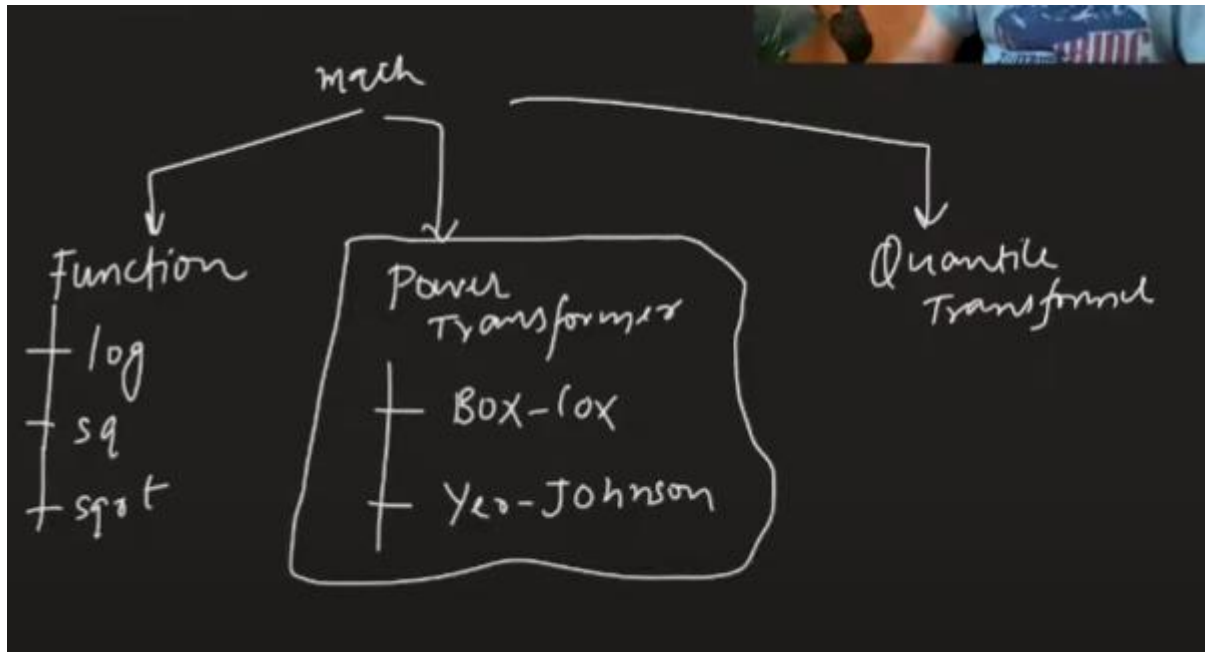 mach
Function
log
sq
sqrt
Power
Transformer
Box-Cox
Yeo-Johnson
Quantile
Transformel